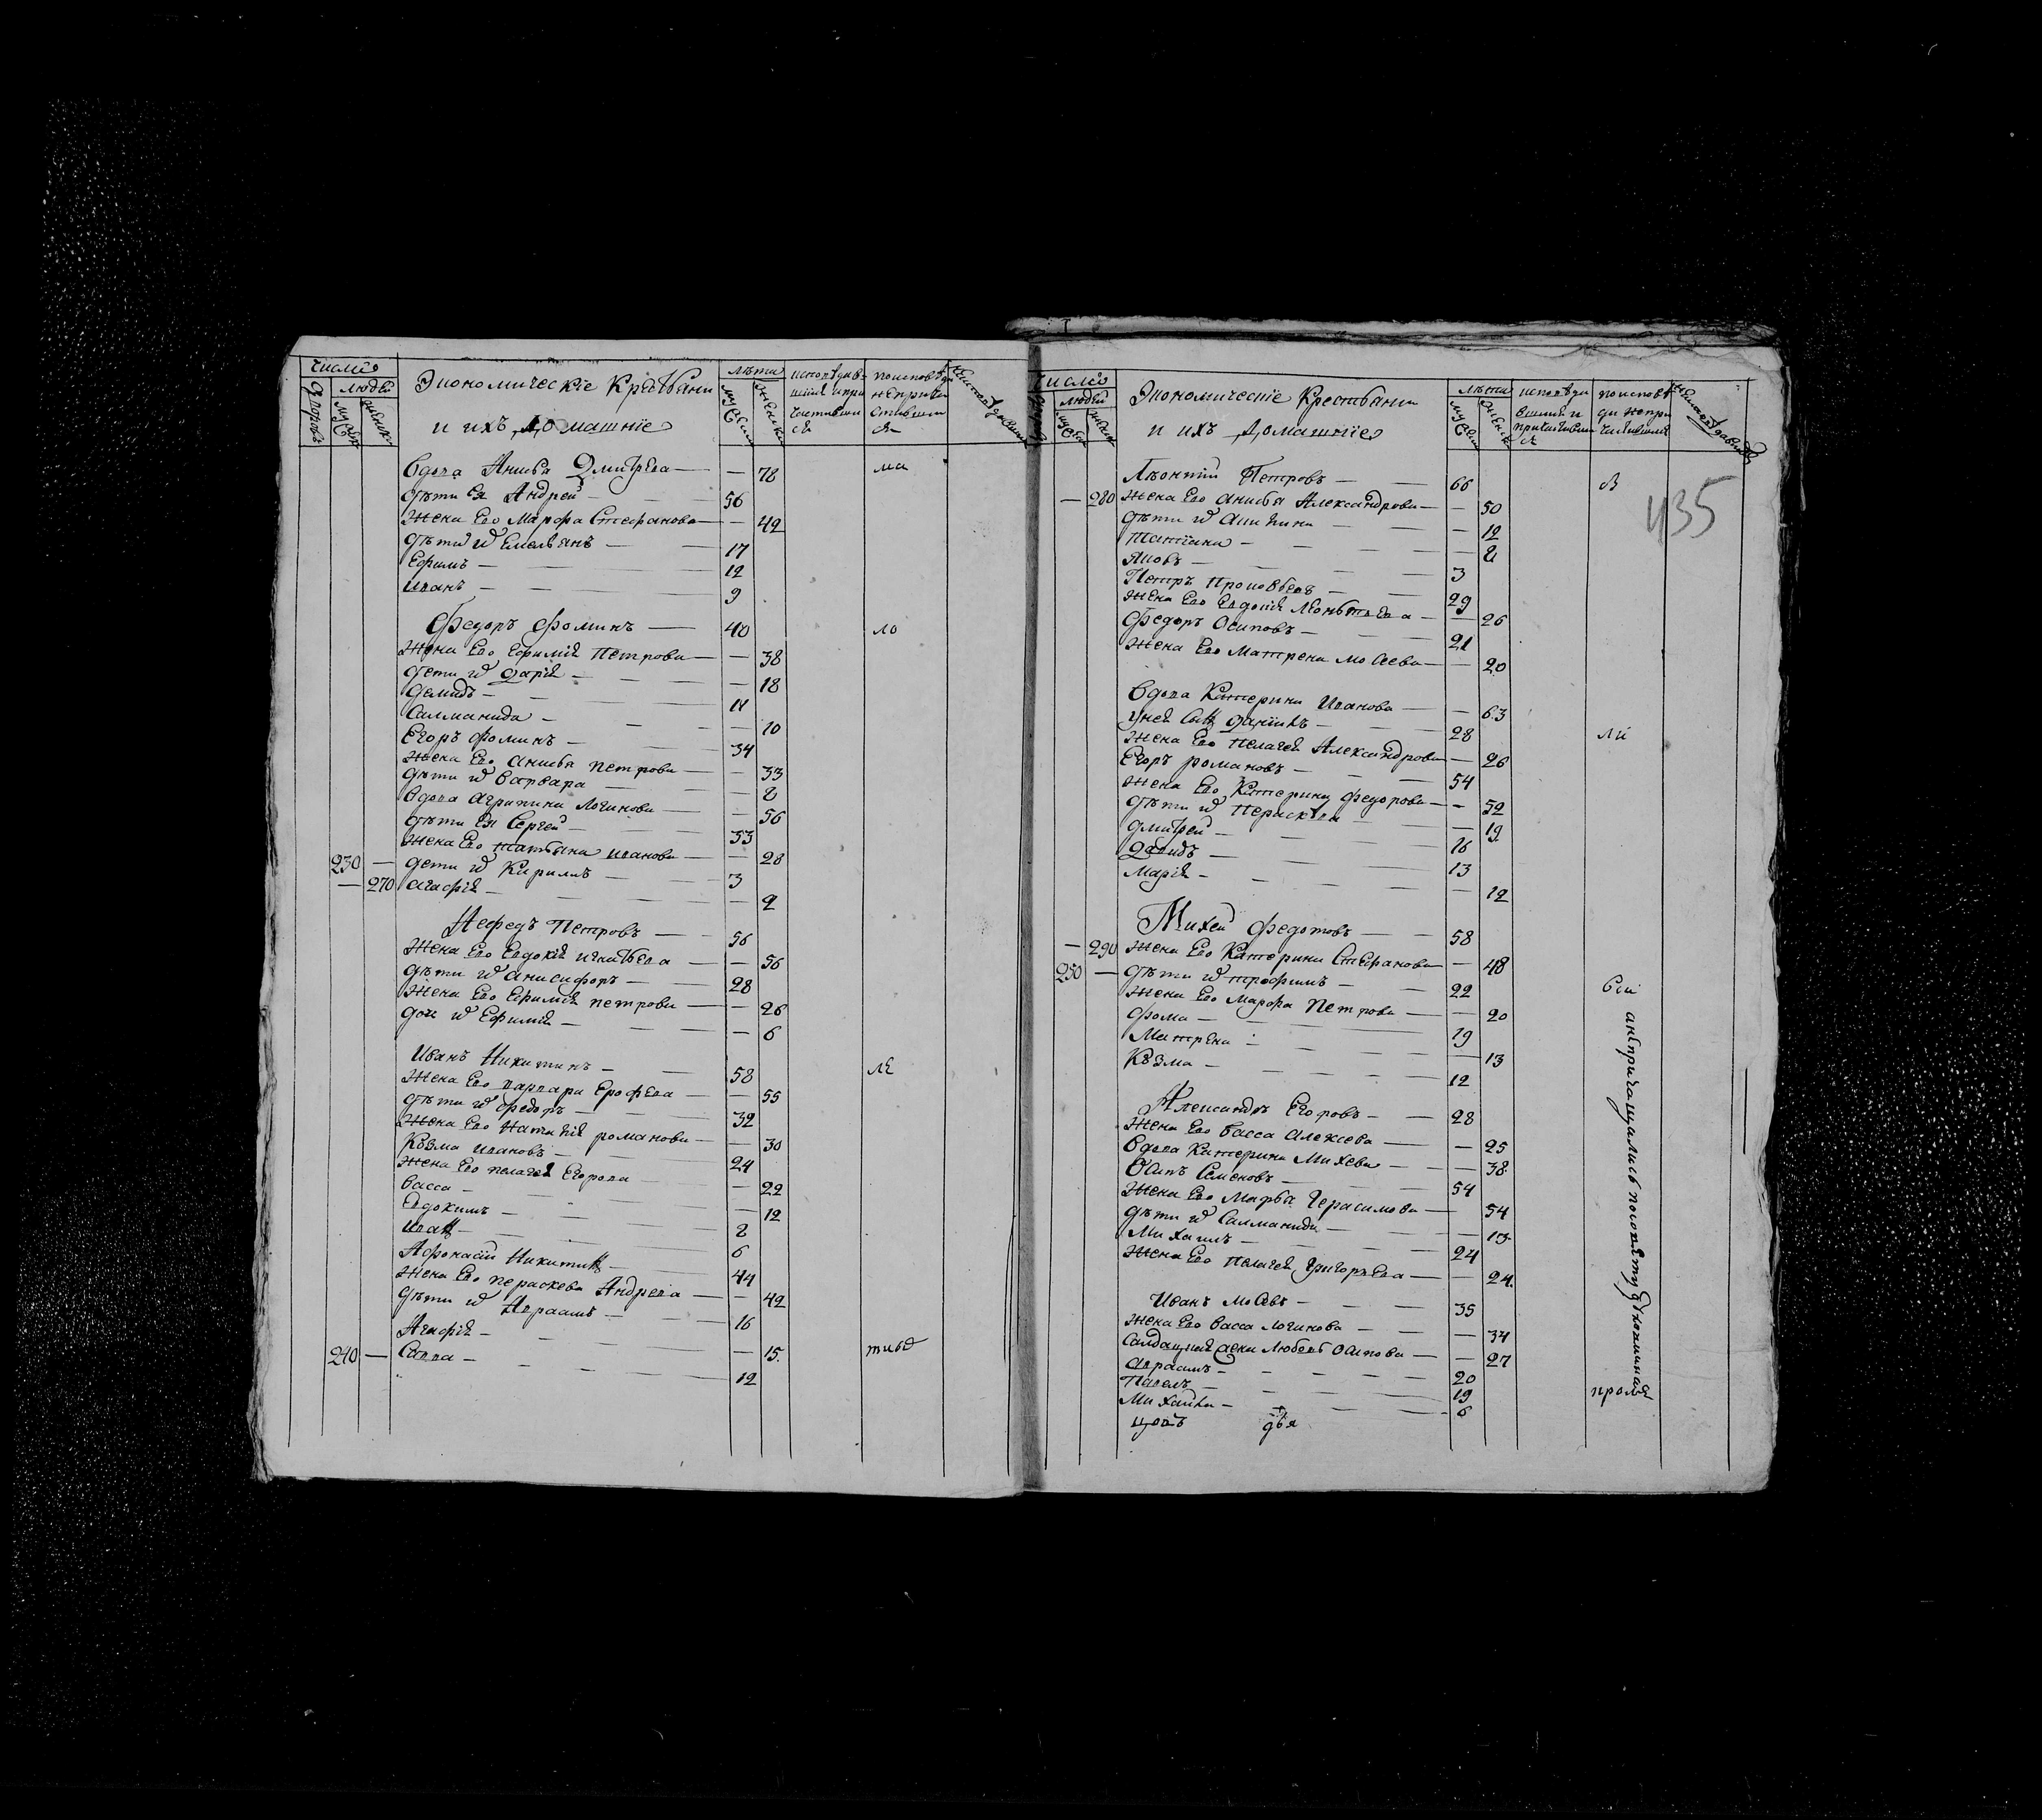 число
дворовъ
людей
мужеска
женска
Экономическіе Крестьяни
и ихъ домашніе
лѣта
мужеска
женска
исповѣдав
шіися и при
частивши
ся
по исповѣди
не причи
стивши
ся
не исповѣдавши
вдова Анисья Дмитрева — — 78 ма
дѣти Ея Андрей — 56
жена Ево Марфа Стефанова — — 49
дѣти их Емельянъ — 17
Ефимъ — 12
иванъ — 9
Федоръ Фоминъ — 40 ло
жена Ево Ефимия Петрова — — 38
дети их дария — — 18
демидъ — 14
Саломанида — — 10
Егоръ фоминъ — 34
жена Ево анисья петрова — — 33
дѣти их варвара — — 2
вдова агрипина логинова — — 56
дѣти Ея Сергей — 33
жена Ево татьяна иванова — — 28
230 — дети их Кирилъ — 3
— 270 агафия — — 2
Нефедъ Петровъ — 56
жена Ево Евдокия игнатьева — — 56
дѣти их анисифоръ — 28
жена Ево Ефимия петрова — — 26
дочь их Ефимия — — 6
Иванъ Никитинъ — 58 лѣ
жена Ево варвара Ерофѣева — — 55
дѣти их федоръ — 32
жена Ево наталия романова — — 30
Козма ивановъ — 24
жена Ево пелагея Егорова — 22
васса — — 12
Евдокимъ — 2
иванъ — 6
Афонасій Никитинъ — 44
жена Ево пераскева Андрева — — 42
дѣти их Авраамъ — 16
Агафия — — 15
240 — Савва — 12 тьво
число
людей
Экономическіе Крестьяни
и ихъ домашніе
лѣта
мужеска
женска
исповѣда
вшиися и
причастивши
ся
по исповѣ
ди не при
частившися
не исповѣдавши
435
Лѣонтій Петровъ — 66
— 280 жена Ево анисья Александрова — — 50
дѣти их акилина — — 12
татіана — — 2
яковъ — 3
Петръ прокофьевъ — 29
жена Ево Евдокия леонтьева — — 26
федоръ Осиповъ — 21
жена Ево Матрена мосеева — — 20
вдова Катерина Иванова — — 63
у ней сынъ данилъ — 28 ли
жена Ево пелагея Александрова — 26
Егоръ романовъ — 54
жена Ево Катерина федорова — — 52
дѣти их пераскева — — 19
дмитрей — 16
давидъ — 13
Мария — — 12
Михей федотовъ — 58
— 290 жена Ево Катерина Стефанова — — 48
250 — дѣти их трофимъ — 22 вси
жена Ево марфа Петрова — — 20
фома — 19
Матрена — — 13
Козма — 12
Александръ Егоровъ — 28
жена Ево васса алексева — — 25
вдова Катерина Михева — — 38
Осипъ Семеновъ — 54
жена Ево Марфа Герасимова — 54
дѣти их Саломанида — — 13
Михаилъ — 24
жена Ево пелагея Григорьева — — 24
Иванъ мосевъ — 35
жена Ево васса логинова — — 34
Салдацкая жена Любовь Осипова — — 27
авраамъ — 20
Павелъ — 19
Михаила — 6
а не причащались по совѣту духовника